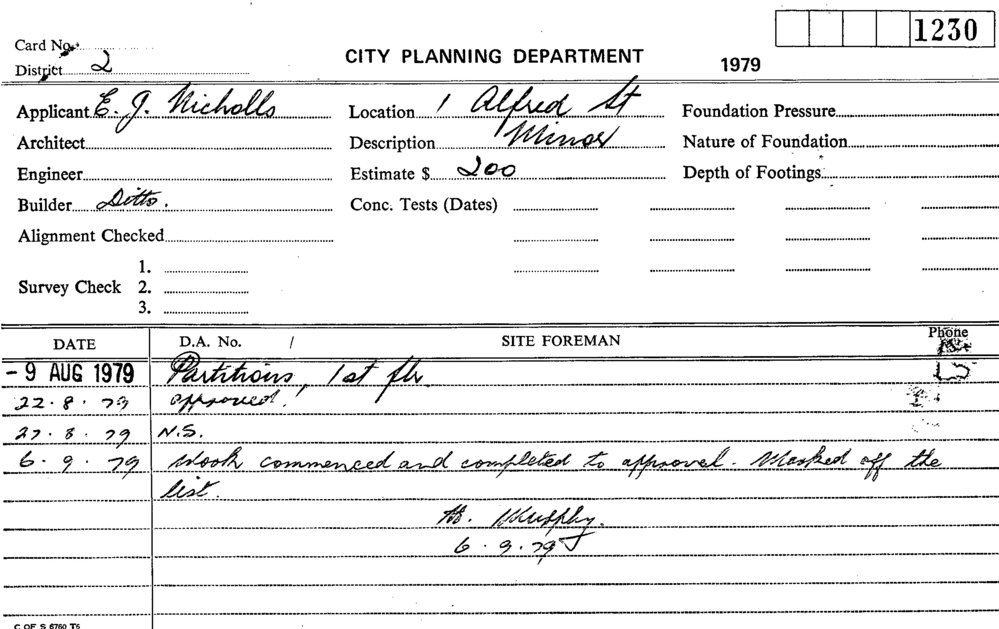 1230
Card No.
CITY PLANNING DEPARTMENT 1979
District 2
Applicant E. J. Nicholls Location 1 Alfred St Foundation Pressure
Architect Description Minor Nature of Foundation
Engineer Estimate $ 200 Depth of Footings
Builder Ditto. Conc. Tests (Dates)
Alignment Checked
1.
Survey Check 2.
3.
DATE D.A. No. / SITE FOREMAN Phone
- 9 AUG 1979 Partitions, 1st flr.
22.8.79 approved.
27.8.79 N.S.
6.9.79 Work commenced and completed to approval. Marked off the
list.
Murphy.
6.9.79
C OF S 6760 T5